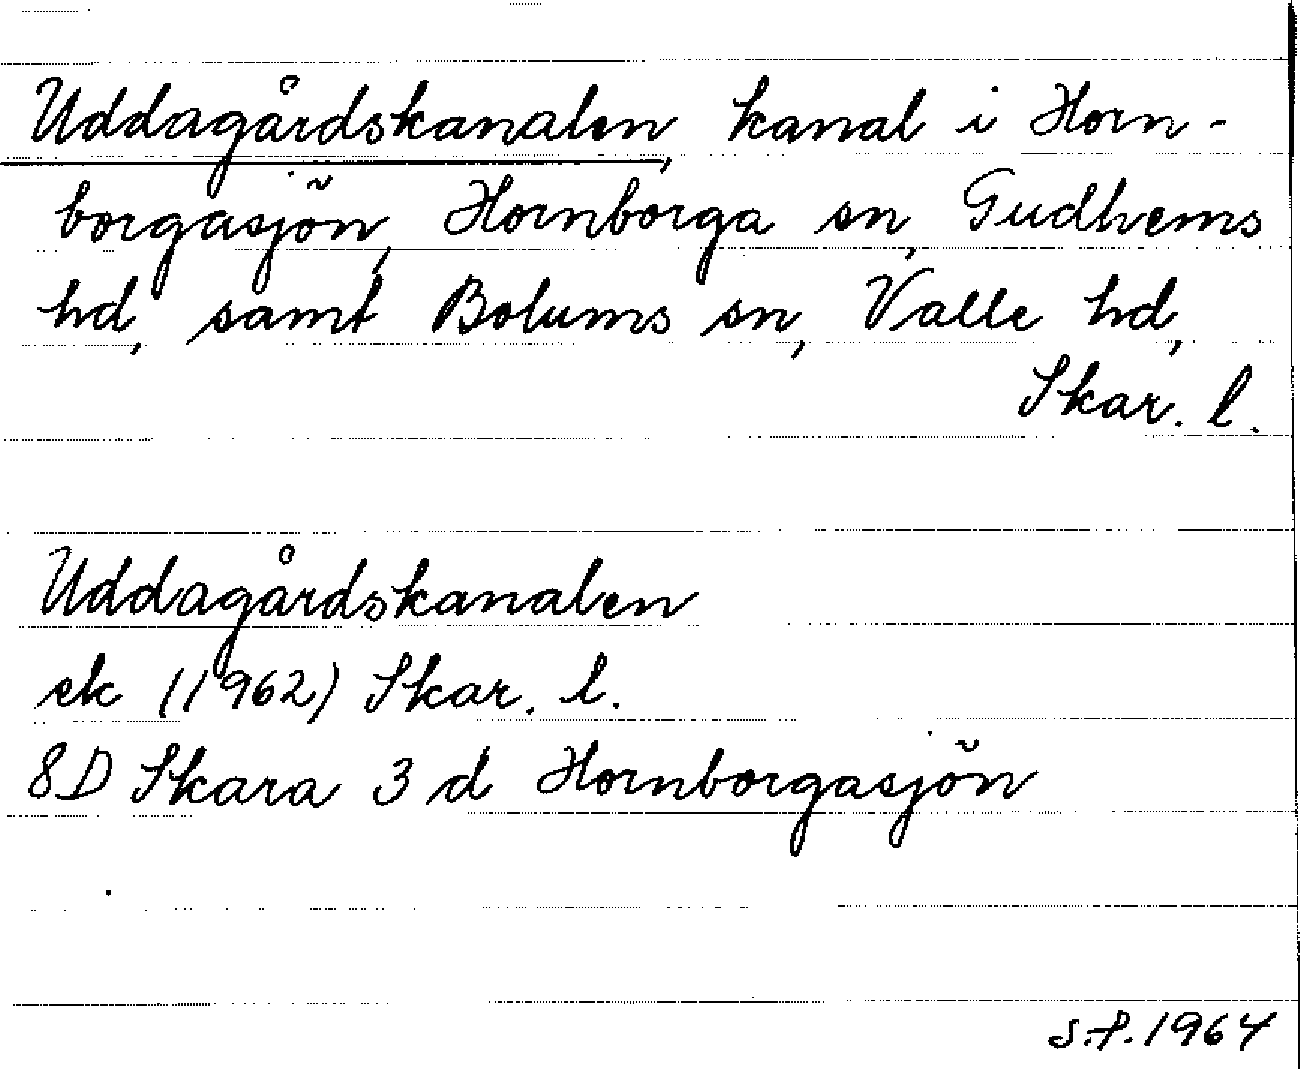 Uddagårdskanalen, kanal i Horn-
borgasjön, Hornborga sn, Gudhems
hd, samt Bolums sn, Valle hd,
Skar. l.
Uddagårdskanalen
ek (1962) Skar. l.
8D Skara 3 d Hornborgasjön
S.P. 1964